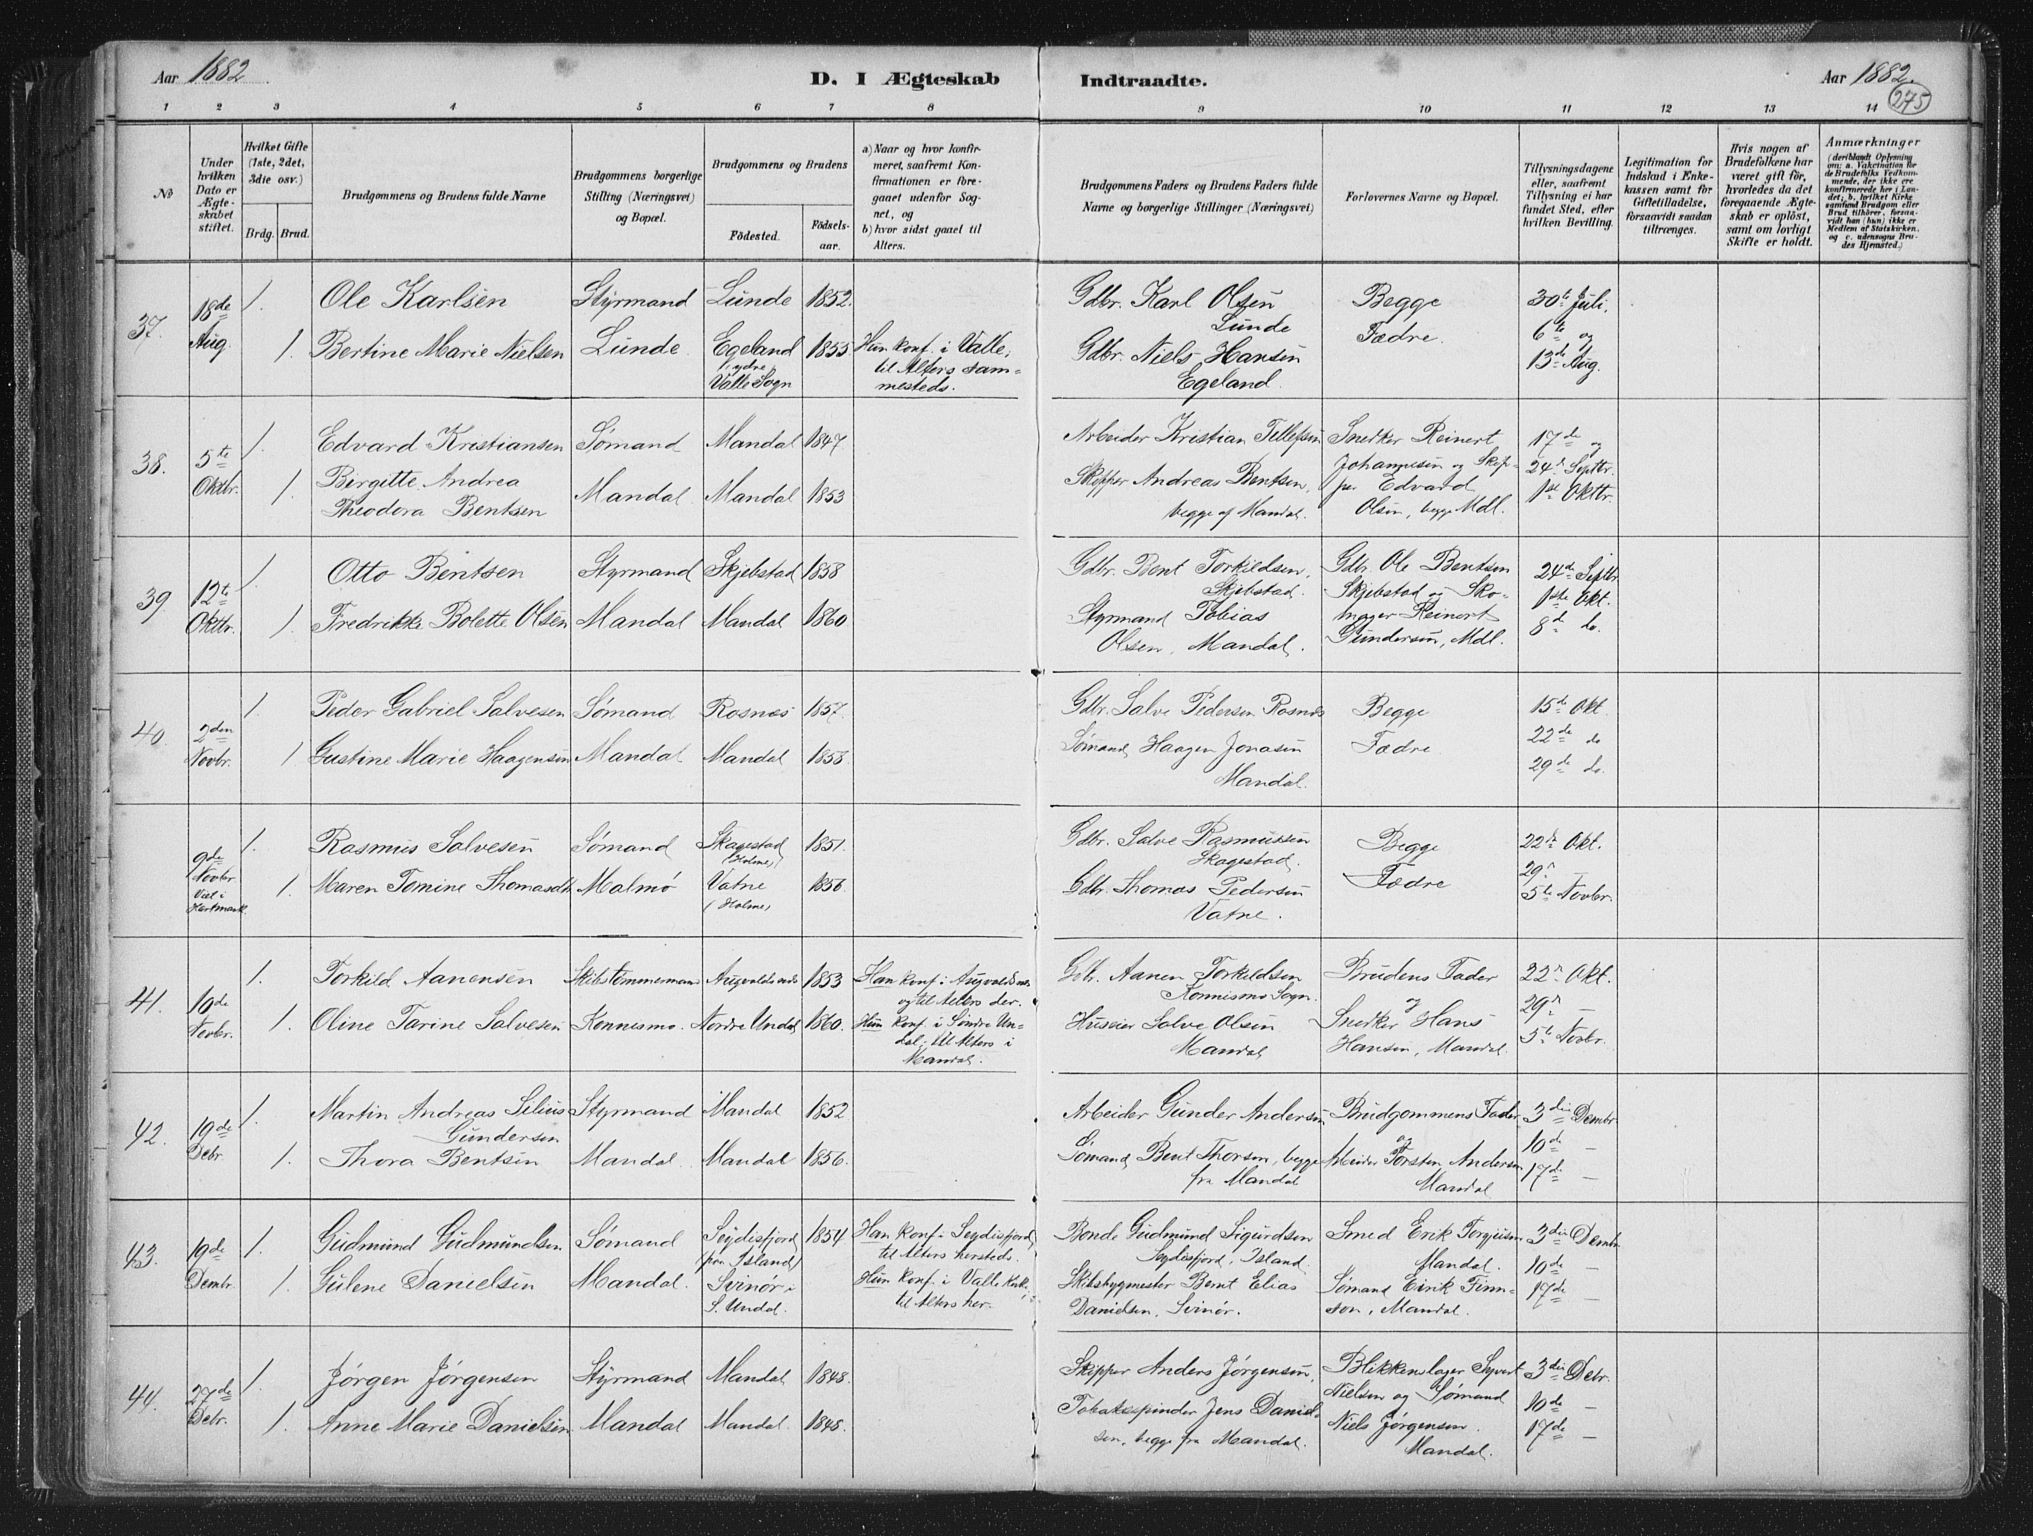 Aar 1882
D. I Ægteskab
Indtraadte.
Aar 1882.
275
1 2 3 4 5 6 7 8 9 10 11 12 13 14
No
Under hvilken Dato er Ægteskabet stiftet.
Hvilket Gifte (1ste, 2det, 3die osv.)
Brdg. Brud.
Brudgommens og Brudens fulde Navne
Brudgommens borgerlige Stilling (Næringsvei) og Bopæl.
Brudgommens og Brudens
Födested.
Födsels-aar.
a) Naar og hvor konfirmeret, saafremt Konfirmationen er foregaaet udenfor Sognet, og
b) hvor sidst gaaet til Alters.
Brudgommens Faders og Brudens Faders fulde Navne og borgerlige Stillinger (Næringsvei)
Forlovernes Navne og Bopæl.
Tillysningsdagene eller, saafremt Tillysning ei har fundet Sted, efter hvilken Bevilling.
Legitimation for Indskud i Ænkekassen samt for Giftetilladelse, forsaavidt saadan tiltrænges.
Hvis nogen af Brudefolkene har været gift för, hvorledes da det foregaaende Ægteskab er oplöst, samt om lovligt Skifte er holdt.
Anmærkninger
(deriblandt Oplysning om: a. Vakcination for de Brudefolks Vedkommende, der ikke ere konfirmerede her i Landet; b. hvilket Kirkesamfund Brudgom eller Brud tilhörer, forsaavidt han (hun) ikke er Medlem af Statskirken, og c. udensogns Brudes Hjemsted.)
37.
18de Aug.
1.
Ole Karlsen
Styrmand
Lunde
1852.
Gdbr. Karl Olsen
Lunde
Begge
30te Juli,
1.
Bertine Marie Nielsen
Lunde.
Egeland
i ydre
Valle Sogn
1855
Hun konf. i Valle;
til Alters sam=
mesteds.
Gdbr. Niels Hansen
Egeland.
Fædre.
6te og
13de Aug.
38.
5te
Oktbr.
1.
Edvard Kristiansen
Sømand
Mandal
1847.
Arbeider Kristian Tellefsen
Snedker Reinert
17de og
1.
Birgitte Andrea
Theodora Bentsen
Mandal
Mandal
1853
Skipper Andreas Bentsen,
begge af Mandal.
Johannesen og Skip=
per Edvard
Olsen, begge Mdl.
24d Septbr.
1st Oktbr.
39
12te
Oktbr.
1.
Otto Bentsen
Styrmand
Skjebstad
1858
Gdbr. Bent Torkildsen,
Skjebstad.
Gdbr. Ole Bentsen
Skjebstad og Sko=
24d Septbr.
1ste Okt.
1.
Fredrikke Bolette Olsen
Mandal
Mandal
1860
Styrmand Tobias
Olsen, Mandal.
mager Reinert
Gundersen, Mdl.
8d do.
40
2den
Novbr.
1.
Peder Gabriel Salvesen
Sømand
Rosnes
1857.
Gdbr. Salve Pedersen Rosnes
Begge
15de Okt
1
Gustine Marie Haagensen
Mandal
Mandal
1858
Sømand Haagen Jonasen
Mandal.
Fædre
22de do
29de do.
9de
Novbr
Viel i
Hartmark
1.
Rasmus Salvesen
Sømand
Skagestad
(Holme)
1851.
Gdbr. Salve Rasmussen
Skagestad.
Begge
22de Okt.
1.
Maren Tomine Thomasdtr
Malmø
Vatne
(Holme)
1856
Gdbr. Thomas Pedersen
Vatne.
Fædre
29n
5te Novbr.
41.
10de
Novbr.
1.
Torkild Aanensen
Skibstømmermand
1853
Han konf. i
og til Alters der.
Gdbr. Aanen Torkildsen
Konnismo Sogn.
Brudens Fader
og
22n Okt.
1.
Oline Tarine Salvesen
Konnesmo.
Nordre Undal
1860.
Hun konf. i Søndre Un=
dal, til Alters i
Mandal.
Salve Olsen
Mandal
Snedker Hans
Hansen, Mandal.
29n —
5te Novbr.
42.
19de
Debr.
1.
Martin Andreas Silius
Gundersen
Styrmand
Mandal
1852
Arbeider Gunder Andersen
Brudgommens Fader
og
3die Dembr
1.
Thora Bentsen
Mandal.
Mandal
1856.
Sømand Bent Thorsen, begge
fra Mandal
Arbeider Torsten Andersen
Mandal
10de —
17de —
43.
19de
Dembr.
1.
Gudmund Gudmundsen
Sømand
Seydisfjord
(paa Island)
1854
Han konf. i Seydisfjord,
til Alters hersteds.
Bonde Gudmund Sigurdsen
Seydisfjord, Island.
Smed Erik Torgiusen
Mandal.
3die Dembr.
10de —
1.
Gulene Danielsen
Mandal.
Svinør i
S. Undal.
Hun konf. i Valle
til Alters her.
Skibsbygmester Bernt Elias
Danielsen, Svinør.
Sømand Eirik Finn=
son, Mandal.
17de —
44.
27de
Debr.
1.
Jørgen Jørgensen
Styrmand
Mandal
1848.
Skipper Anders Jørgensen,
Blikkenslager Syvert
Nielsen og Sømand
3die Debr.
10de —
1.
Anne Marie Danielsen
Mandal
Mandal
1848.
Tobaksspinder Jens Daniel=
sen, begge fra Mandal.
Niels Jørgensen.
Mandal.
17de —